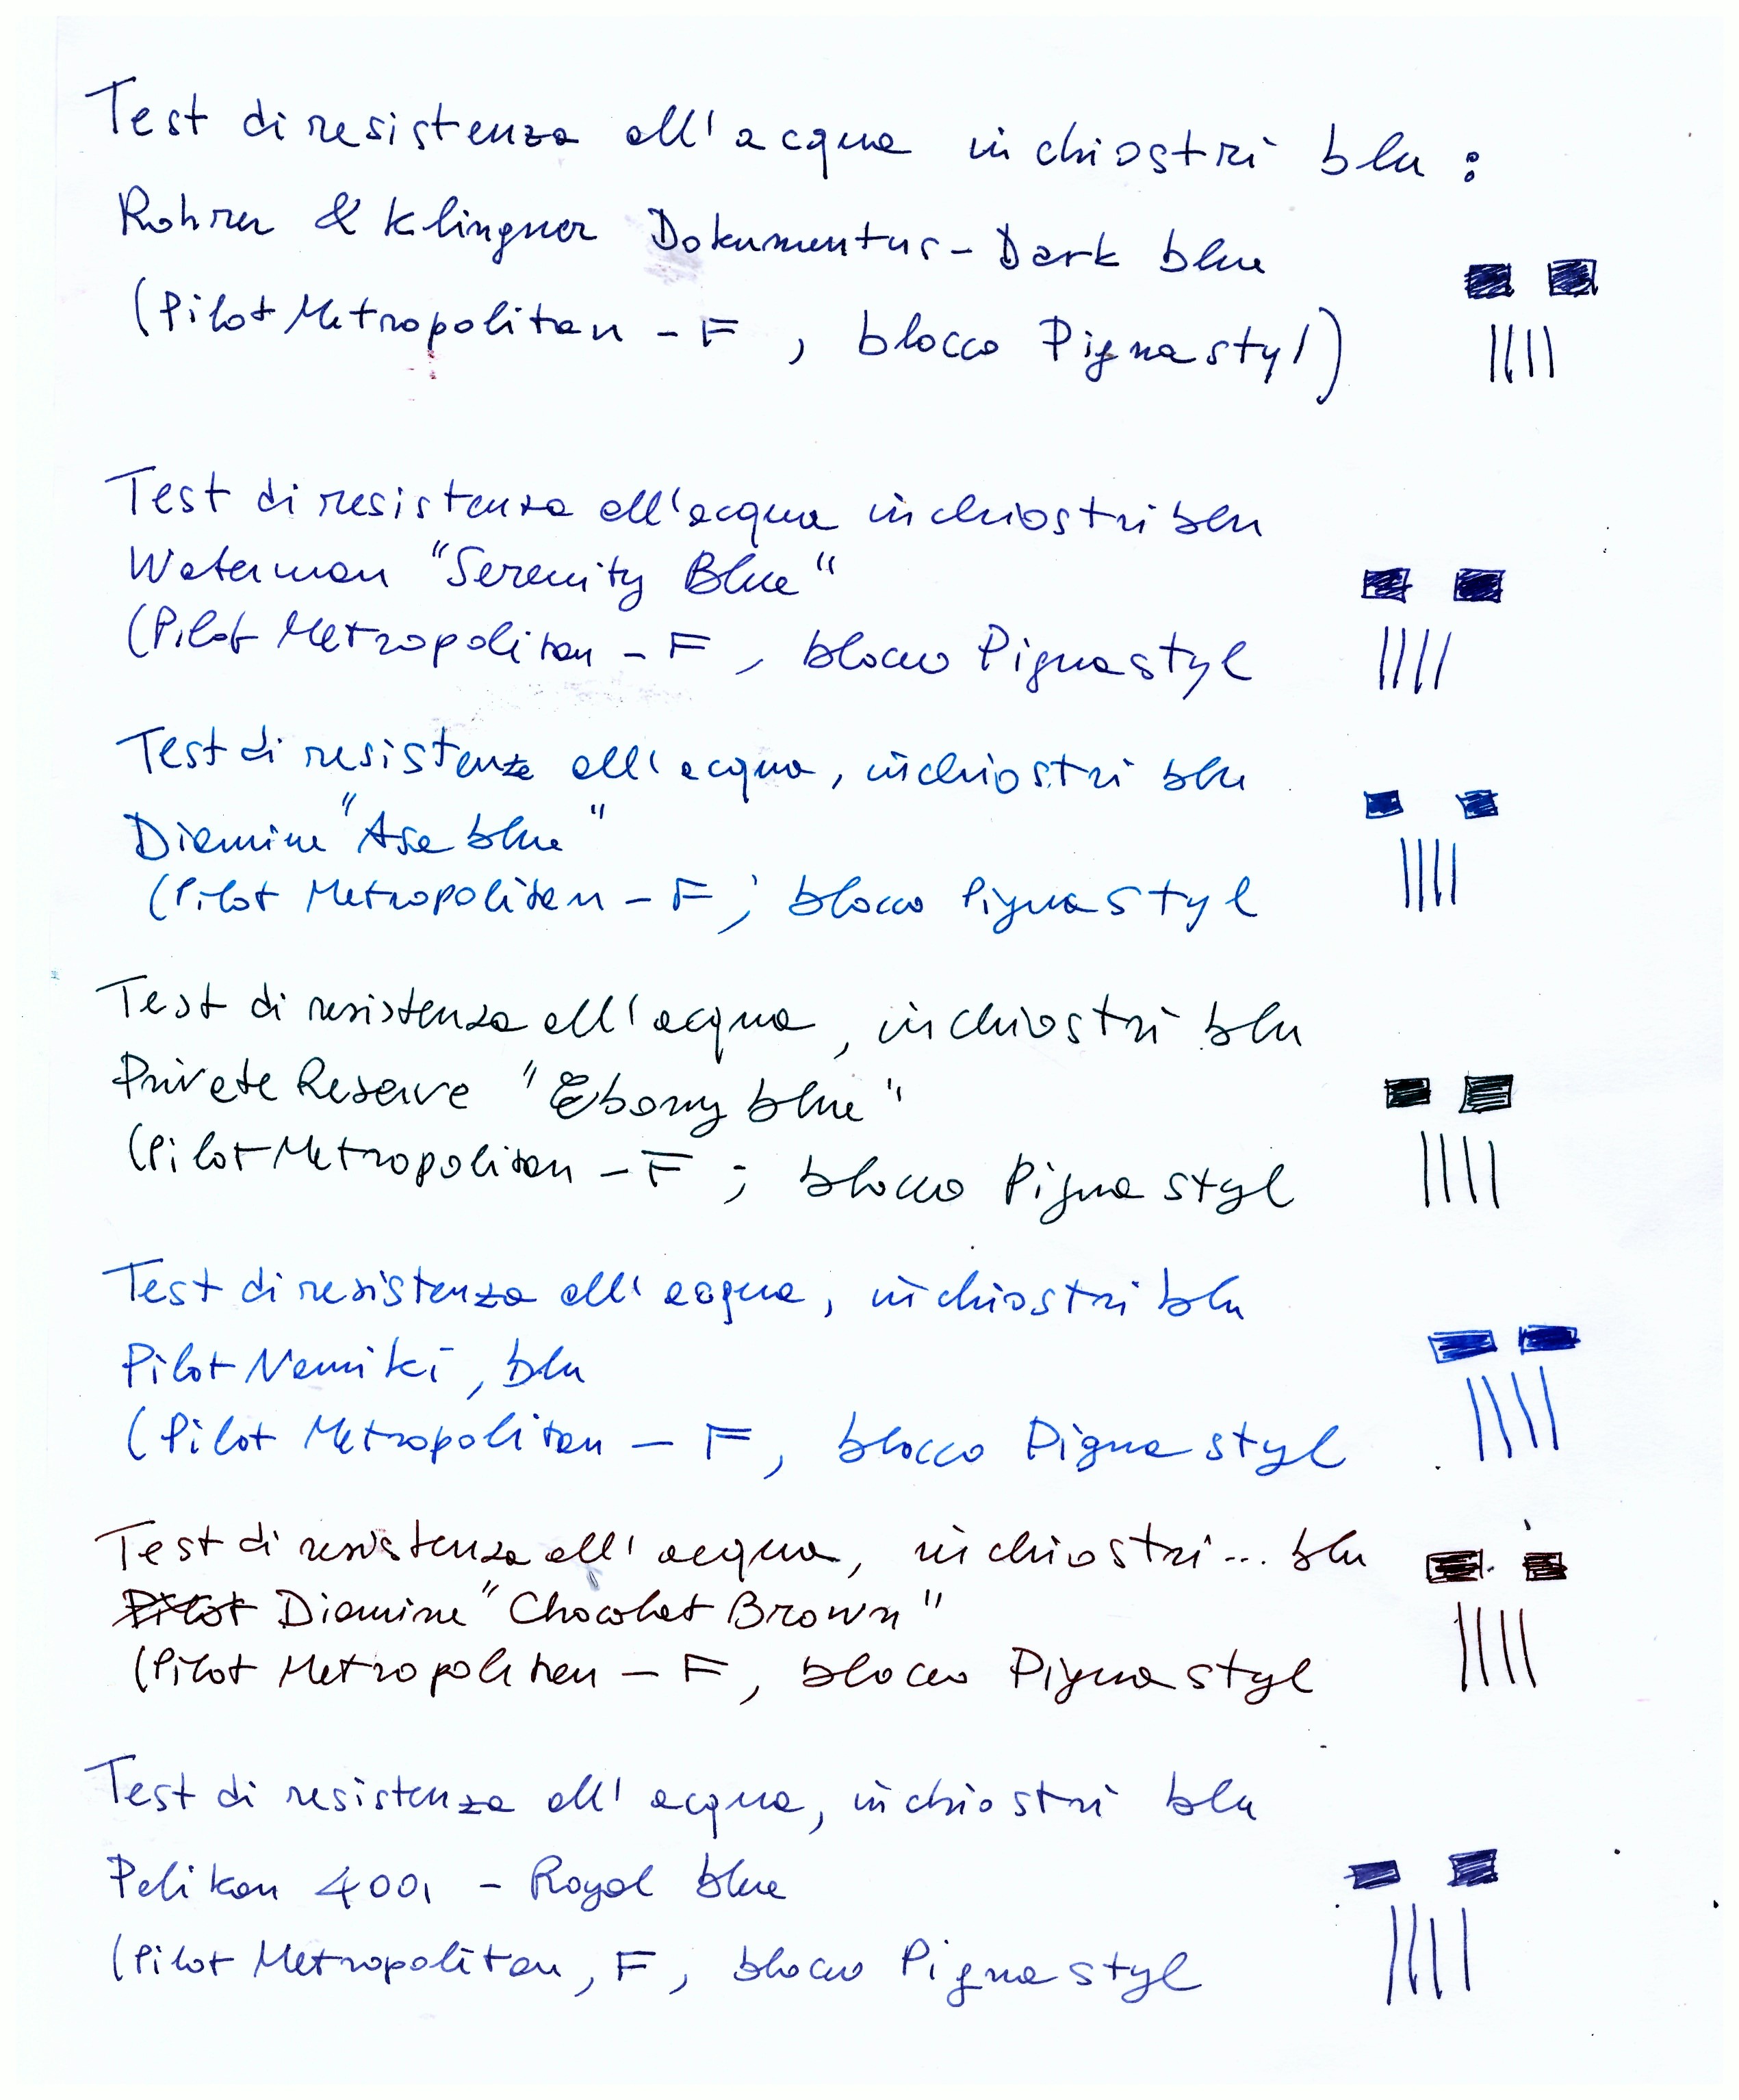 Test di resistenza all'acqua inchiostri blu :
Rohrer & Klingner Dokumentus - Dark blue
(Pilot Metropolitan - F , blocco Pigna styl)
Test di resistenza all'acqua inchiostri blu
Waterman "Serenity Blue"
(Pilot Metropolitan - F , blocco Pigna styl
Test di resistenza all'acqua, inchiostri blu
Diamine "Asa blue"
(Pilot Metropolitan - F ; blocco Pigna styl
Test di resistenza all'acqua, inchiostri blu
Private Reserve "Ebony blue"
(Pilot Metropolitan - F ; blocco Pigna styl
Test di resistenza all'acqua, inchiostri blu
Pilot Namiki, blu
(Pilot Metropolitan - F, blocco Pigna styl
Test di resistenza all'acqua, inchiostri... blu
Pilot Diamine "Chocolat Brown"
(Pilot Metropolitan - F, blocco Pigna styl
Test di resistenza all'acqua, inchiostri blu
Pelikan 4001 - Royal blue
(Pilot Metropolitan, F, blocco Pigna styl